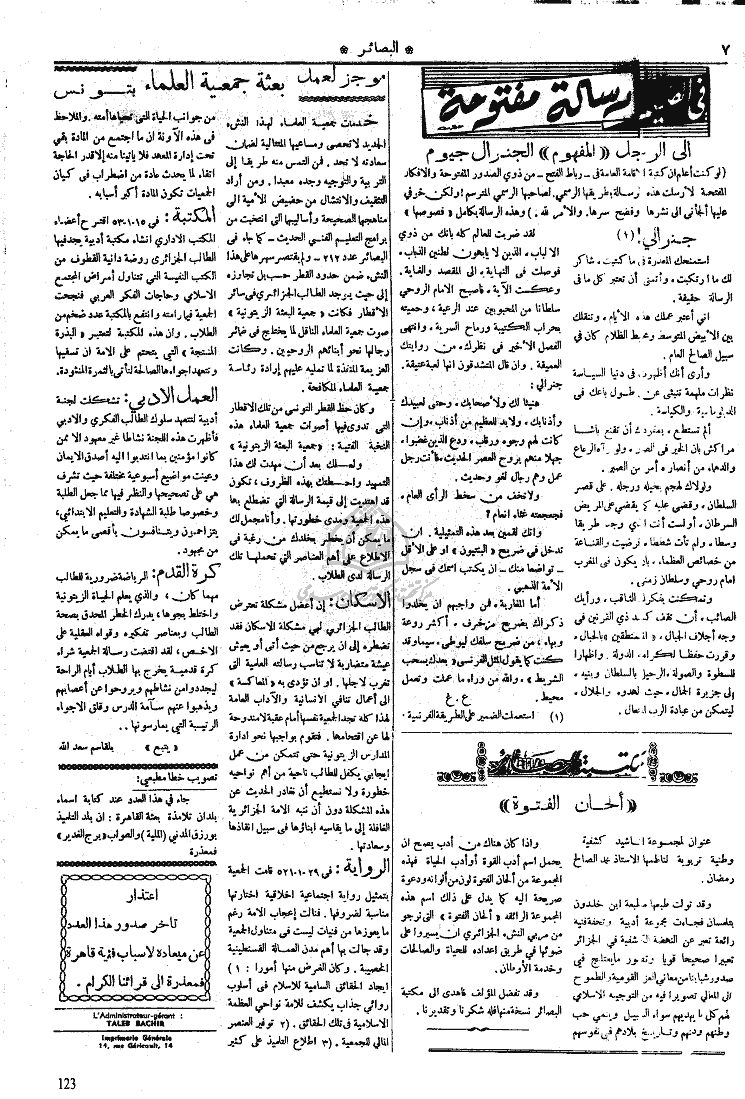 ٧
* البصائر *
في الصميم
رسالة مفتوحة
الى الرجل «المفهوم» الجنرال جيوم
(لو كنت أعلم ان كتبة الاقامة العامة في رباط الفتح - من ذوي الصدور المفتوحة والافكار
المفتحة لأرسلت هذه الرسالة بطريقها الرسمي لصاحبها الرسمي المترسم! ولكن خرقي
عليها ألجأني الى نشرها وفضح سرها. والأمر لله.) وهذه الرسالة بكامل «فصوصها»
جنرالي! (١)
استمنحك المعذرة في ماكتبت، شاكر
لك ما ارتكبت، وأتمنى أن تعتبر كل ما في
الرسالة حقيقة.
اني أعتبر عملك هذه الأيام، وتنقلك
بين الأبيض المتوسط ومحيط الظلام كان في
سبيل الصالح العام.
وأرى أنك أظهرت في دنيا السياسة
نظرات ملهمة تنبئ عن طول باعك في
الدبلوماسية والكياسة.
ألم تستطع، بمفردك أن تقنع باشا
مراكش بأن الخير في الصبر، ولو رآه الرعاع
والدهماء من أنصاره أمر من الصبر.
ولولاك لهجم بخيله ورجله، على قصر
السلطان، وقضى عليه كما يقضي على المريض
السرطان. أولست أنت الذي وجد طريقا
وسطا، ولم تأت شططا، فرضيت والقناعة
من خصائص العظماء، بأن يكون في المغرب
امام روحي وسلطان زمني.
وتمكنت بفكرك الثاقب، ورأيك
الصائب، أن تقف كسد ذي القرنين في
وجه أجلاف الجبال، المتمنطقين بالحبال،
وقررت حفظا لكرامة الدولة، واظهارا
للسطوة والصولة، الرحيل بالسلطان وبنيه،
إلى جزيرة الجمال، حيث الهدوء والجلال،
ليتمكن من عبادة الرب المتعال.
لقد ضربت للعالم كله بانك من ذوي
الالباب، الذين لا يأبهون لطنين الذباب،
فوصلت في النهاية، الى المقصد والغاية.
وعكست الآية، فأصبح الامام الروحي
سلطانا من المحبوبين عند الرعية، وحميته
بحراب الكتيبة ورماح السرية، وانتهى
الفصل الأخير في نظرك، من روايتك
العميقة، وان قال المتشدقون انها لعبة عتيقة.
جنرالي!
هنيئا لك ولأصحابك، وحتى لعبيدك
وأذنابك، ولابد للعظيم من أذناب، وإن
كانت لهم وجوه ورقاب، ودع الذين غضبوا،
جهلا منهم بروح العصر الحديث، فأنت رجل
عمل وهم رجال لغو وحديث.
ولا تخف من سخط الرأى العام،
فجمجعته غثاء انعام؟
وانك لقمين بعد هذه التمثيلية. ان
تدخل في ضريح «البنتيون» او على الأقل
- تواضعا منك - ان يكتب اسمك في سجل
الأمة الذهبي.
أما المغاربة، فمن واجبهم ان يخلدوا
ذكراك بضريح مزخرف، أكثر روعة
وبهاء، من ضريح سلفك ليوطي، سيماوقد
كنت كما يقول المثل الفرنسي «بعدك سحب
الشريط»، والله من وراء ما عملت وتعمل
محيط.
ع. غ
(١) استعملت الضمير على الطريقة الفرنسية.
مكتبة البصائر
«ألحان الفتوة»
عنوان لمجموعة اناشيد كشفية
وطنية تربوية لناظمها الاستاذ محمد الصالح
رمضان.
وقد تولت طبعها مطبعة ابن خلدون
بتلمسان فجاءت مجموعة أدبية وتحفة فنية
رائعة تعبر عن النهضة الكشفية في الجزائر
تعبيرا صحيحا قويا وتصور مايعتلج في
صدور شبابنا من معاني العز القومية والطموح
الى المعالي تصويرا فيه من التوجيه الاسلامي
والعربي كل ما يهديهم سواء السبيل وينمي حب
وطنهم ودنهم وتاريخ بلادهم في نفوسهم
واذا كان هناك من أدب يصح ان
يحمل اسم أدب القوة أو أدب الحياة فهذه
المجموعة من ألحان الفتوة لون من ألوانه ودعوة
صريحة اليه كما يدل على ذلك اسم هذه
المجموعة الرائقة «ألحان الفتوة» التي نرجو
من مربي النشء الجزائري ان يسيروا على
ضوئها في طريق اعداده للحياة والصالحات
وخدمة الأوطان.
وقد تفضل المؤلف فأهدى الى مكتبة
البصائر نسخة منها فله شكرنا وتقديرنا.
موجز لعمل بعثة جمعية العلماء بتونس
خدمات جمعية العلماء لهذا النشء
الجديد لاتحصى ومساعيها المتتالية لضمان
سعادته لا تحد. فمن التمس منه طريقا إلى
التربية والتوجيه وجده معبدا. ومن أراد
التثقيف والانتشال من حضيض الأمية ألفى
مناهجها الصحيحة وأساليبها التي انتخبت من
برامج التعليم الفني الحديث - كما جاء في
البصائر عدد ٢١٧ - ولم يقتصر سهرها على هذا
النشء ضمن حدود القطر حسب بل تجاوزه
إلى حيث يوجد الطالب الجزائري في سائر
الأقطار فكانت «جمعية البعثة الزيتونية»
صوت جمعية العلماء الناقل لما يختلج في ضمائر
رجالها نحو أبنائهم الروحيين. وكانت
العزيمة المنفذة لما تمليه عليهم إرادة رئاسة
جمعية العلماء المكافحة.
وكان حظ القطر التونسي من تلك الأقطار
التي تدوى فيها أصوات جمعية العلماء هذه
النخبة الفتية: «جمعية البعثة الزيتونية»
ولعلك بعد أن مهدت لك هذا
التمهيد واحطتك بهذه الظروف، تكون
قد اهتديت إلى قيمة الرسالة التي تضطلع بها
هذه الجمعية ومدى خطورتها. وأنا مجمل لك
ما يمكن أن يخطر بخلدك من رغبة في
الاطلاع على أهم العناصر التي تحملها تلك
الرسالة لدى الطلاب.
الاسكان: إن أعضل مشكلة تعترض
الطالب الجزائري لهي مشكلة الاسكان فقد
تضطره إلى ان يرجع من حيث أتى أو يعيش
عيشة متضاربة لا تناسب رسالته العلمية التي
تغرب لاجلها. او ان تؤدي به «المعاكسة»
الى أعمال تنافي الأنسانية والآداب العامة
لهذا كله تجد الجمعية نفسها أمام عقبة لامندوحة
لها عن اقتحامها. فتقوم بواجبها نحو ادارة
المدارس الزيتونية حتى تتمكن من عمل
إيجابي يكفل للطالب ناحية من أهم نواحيه
خطورة ولا نستطيع أن نغادر الحديث عن
هذه المشكلة دون أن ننبه الامة الجزائرية
الغافلة إلى ما يقاسيه ابناؤها في سبيل انقاذها
وسعادتها.
الرواية: في ٢٩-١٠-٥٢ قامت الجمعية
بتمثيل رواية اجتماعية اخلاقية اختارتها
مناسبة لظروفها. فنالت إعجاب الامة رغم
ما يعوزها من فنيات ليست في متناول الجمعية
وقد جالت بها أهم مدن العمالة القسنطينية
الخصيبة. وكان الغرض منها أمورا: ١)
إيجاد الحقائق السامية للاسلام في أسلوب
روائي جذاب يكشف للامة نواحي العظمة
الاسلامية في تلك الحقائق. (٢ توفير العنصر
المالي للجمعية. (٣ اطلاع التلميذ على كثير
من جوانب الحياة التي تحياها أمته. والملاحظ
في هذه الآونة ان ما اجتمع من المادة بقي
تحت إدارة المعهد فلا يأتينا منه إلا قدر الحاجة
اتقاء لما يحدث عادة من اضطراب في كيان
الجمعيات تكون المادة أكبر أسبابه.
المكتبة: في ١٥-٠١-٥٣ اقترح أعضاء
المكتب الاداري انشاء مكتبة أدبية يجد فيها
الطالب الجزائري روضة دانية القطوف من
الكتب النفيسة التي تتناول أمراض المجتمع
الاسلامي وحاجات الفكر العربي فنجحت
الجمعية فيما رامته وانتفع بالمكتبة عدد ضخم من
الطلاب. وان هذه المكتبة لتعتبر «البذرة
المنتجة» التي يتحتم على الامة ان تسقيها
وتتعهد اجواءها الصالحة لتأتى بالثمرة المنشودة.
العمل الادبي: تشكلت لجنة
أدبية لتتعهد سلوك الطالب الفكري والادبي
فأظهرت هذه اللجنة نشاطا غير معهود الا ممن
كانوا مؤمنين بما انتدبوا اليه أصدق الإيمان
وعينت مواضيع أسبوعية مختلفة حيث تشرف
هي على تصحيحها والنظر فيها مما جعل الطلبة
وخصوصا طلبة الشهادة والتعليم الابتدائي،
يتزاحمون ويتنافسون بأقصى ما يمكن
من مجهود.
كرة القدم: الرياضة ضرورية للطالب
مهما كان، والذي يعلم الحياة الزيتونية
واختلط بجوها، يدرك الخطر المحدق بصحة
الطالب وبعناصر تفكيره وقواه العقلية على
الاخص، لقد اقتضت رسالة الجمعية شراء
كرة قدمية يخرج بها الطلاب أيام الراحة
ليجددوا من نشاطهم ويروحوا عن أعصابهم
ويذهبوا عنهم سآمة الدرس وقلق الاجواء
الرتيبة التي يمارسونها.
«يتبع» بلقاسم سعد الله
تصويب خطأ مطبعي:
جاء في هذا العدد عند كتابة اسماء
بلدان تلامذة بعثة القاهرة: ان بلد التلميذ
بورزق المدني (الملية) والصواب «برج الغدير»
فمعذرة
اعتذار
تأخر صدور هذا العدد
عن ميعاده لاسباب فنية قاهرة
فمعذرة الى قرائنا الكرام.
L'Administrateur-gérant :
TALEB BACHIR
Imprimerie Générale
14, rue Géricault, 14
123